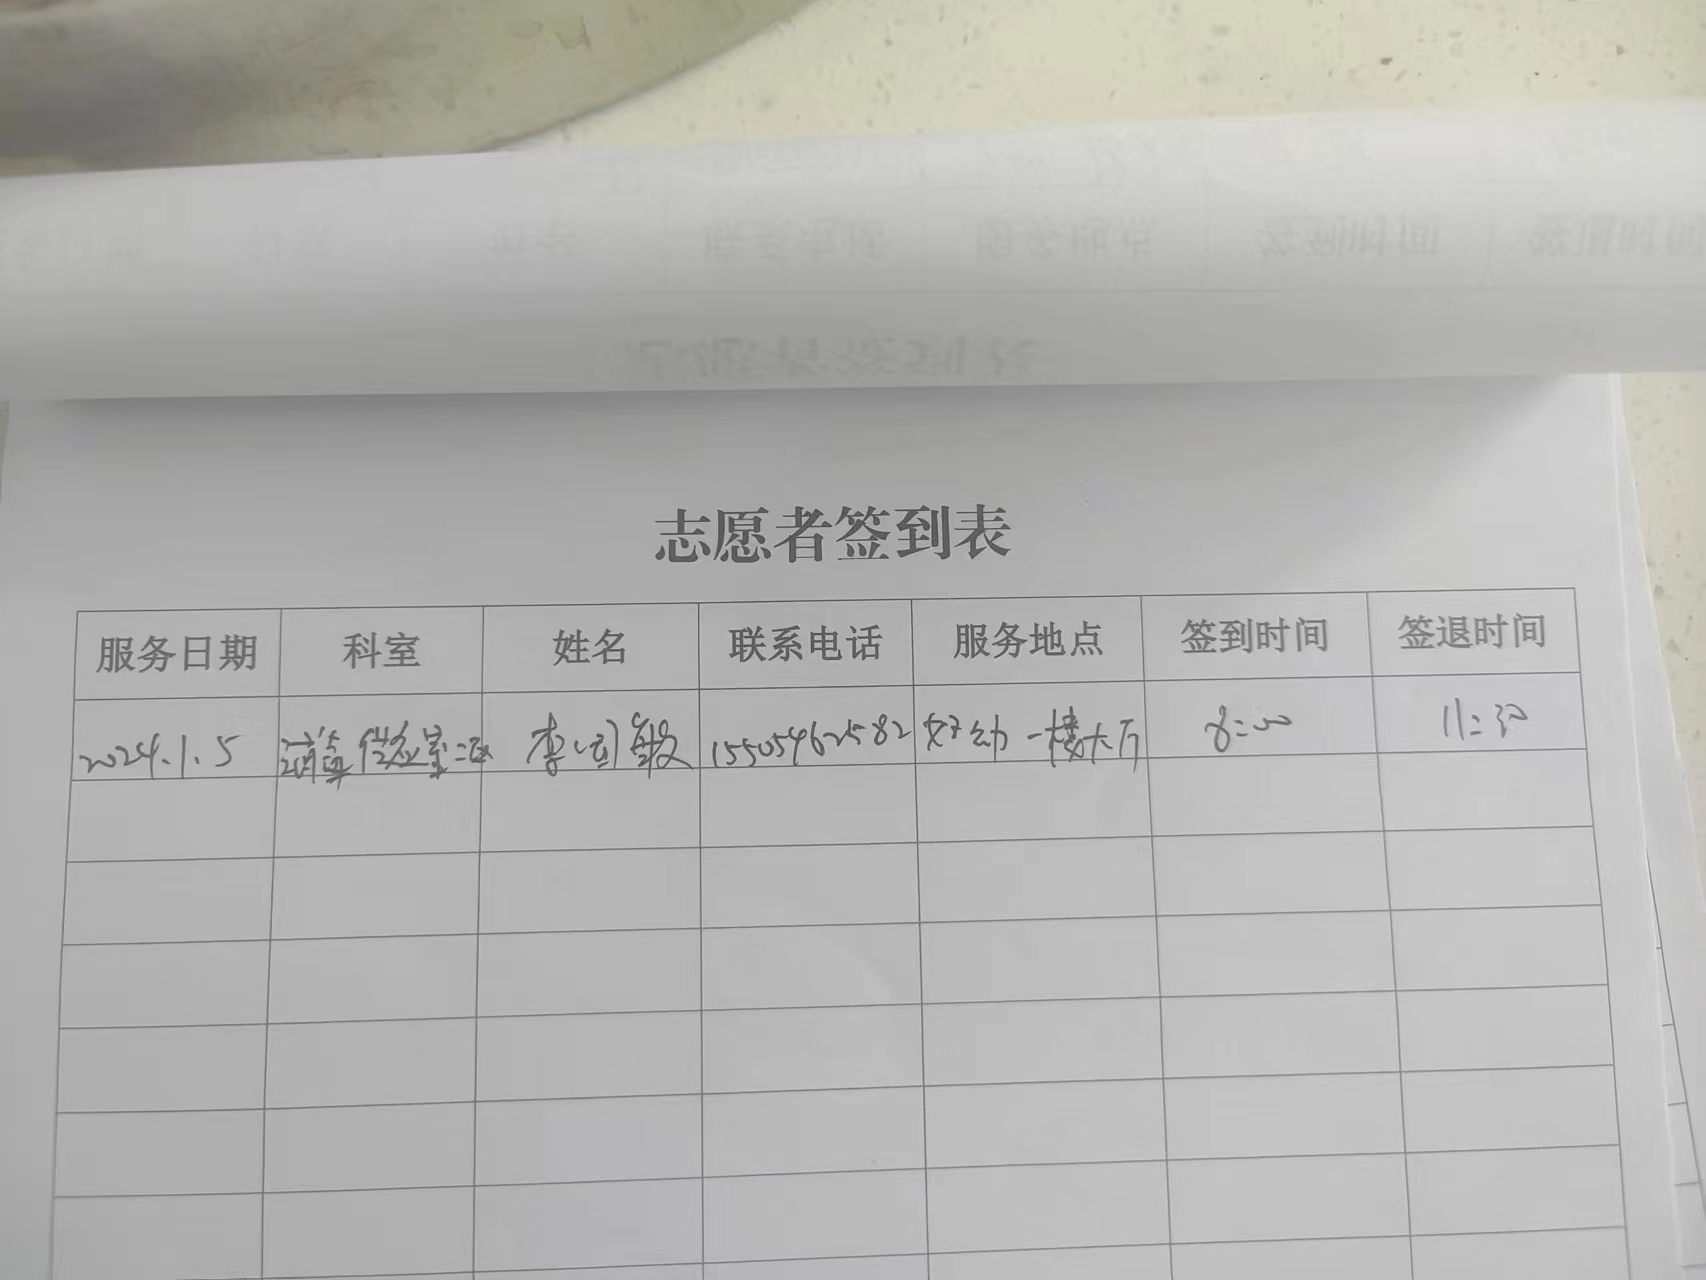 志愿者签到表
服务日期 科室 姓名 联系电话 服务地点 签到时间 签退时间
2024.1.5 消毒供应室二区 李 敏 15505462582 妇幼一楼大厅 8:00 11:30